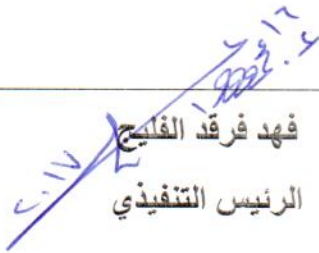 فهد فرقد الفليج
الرئيس التنفيذي